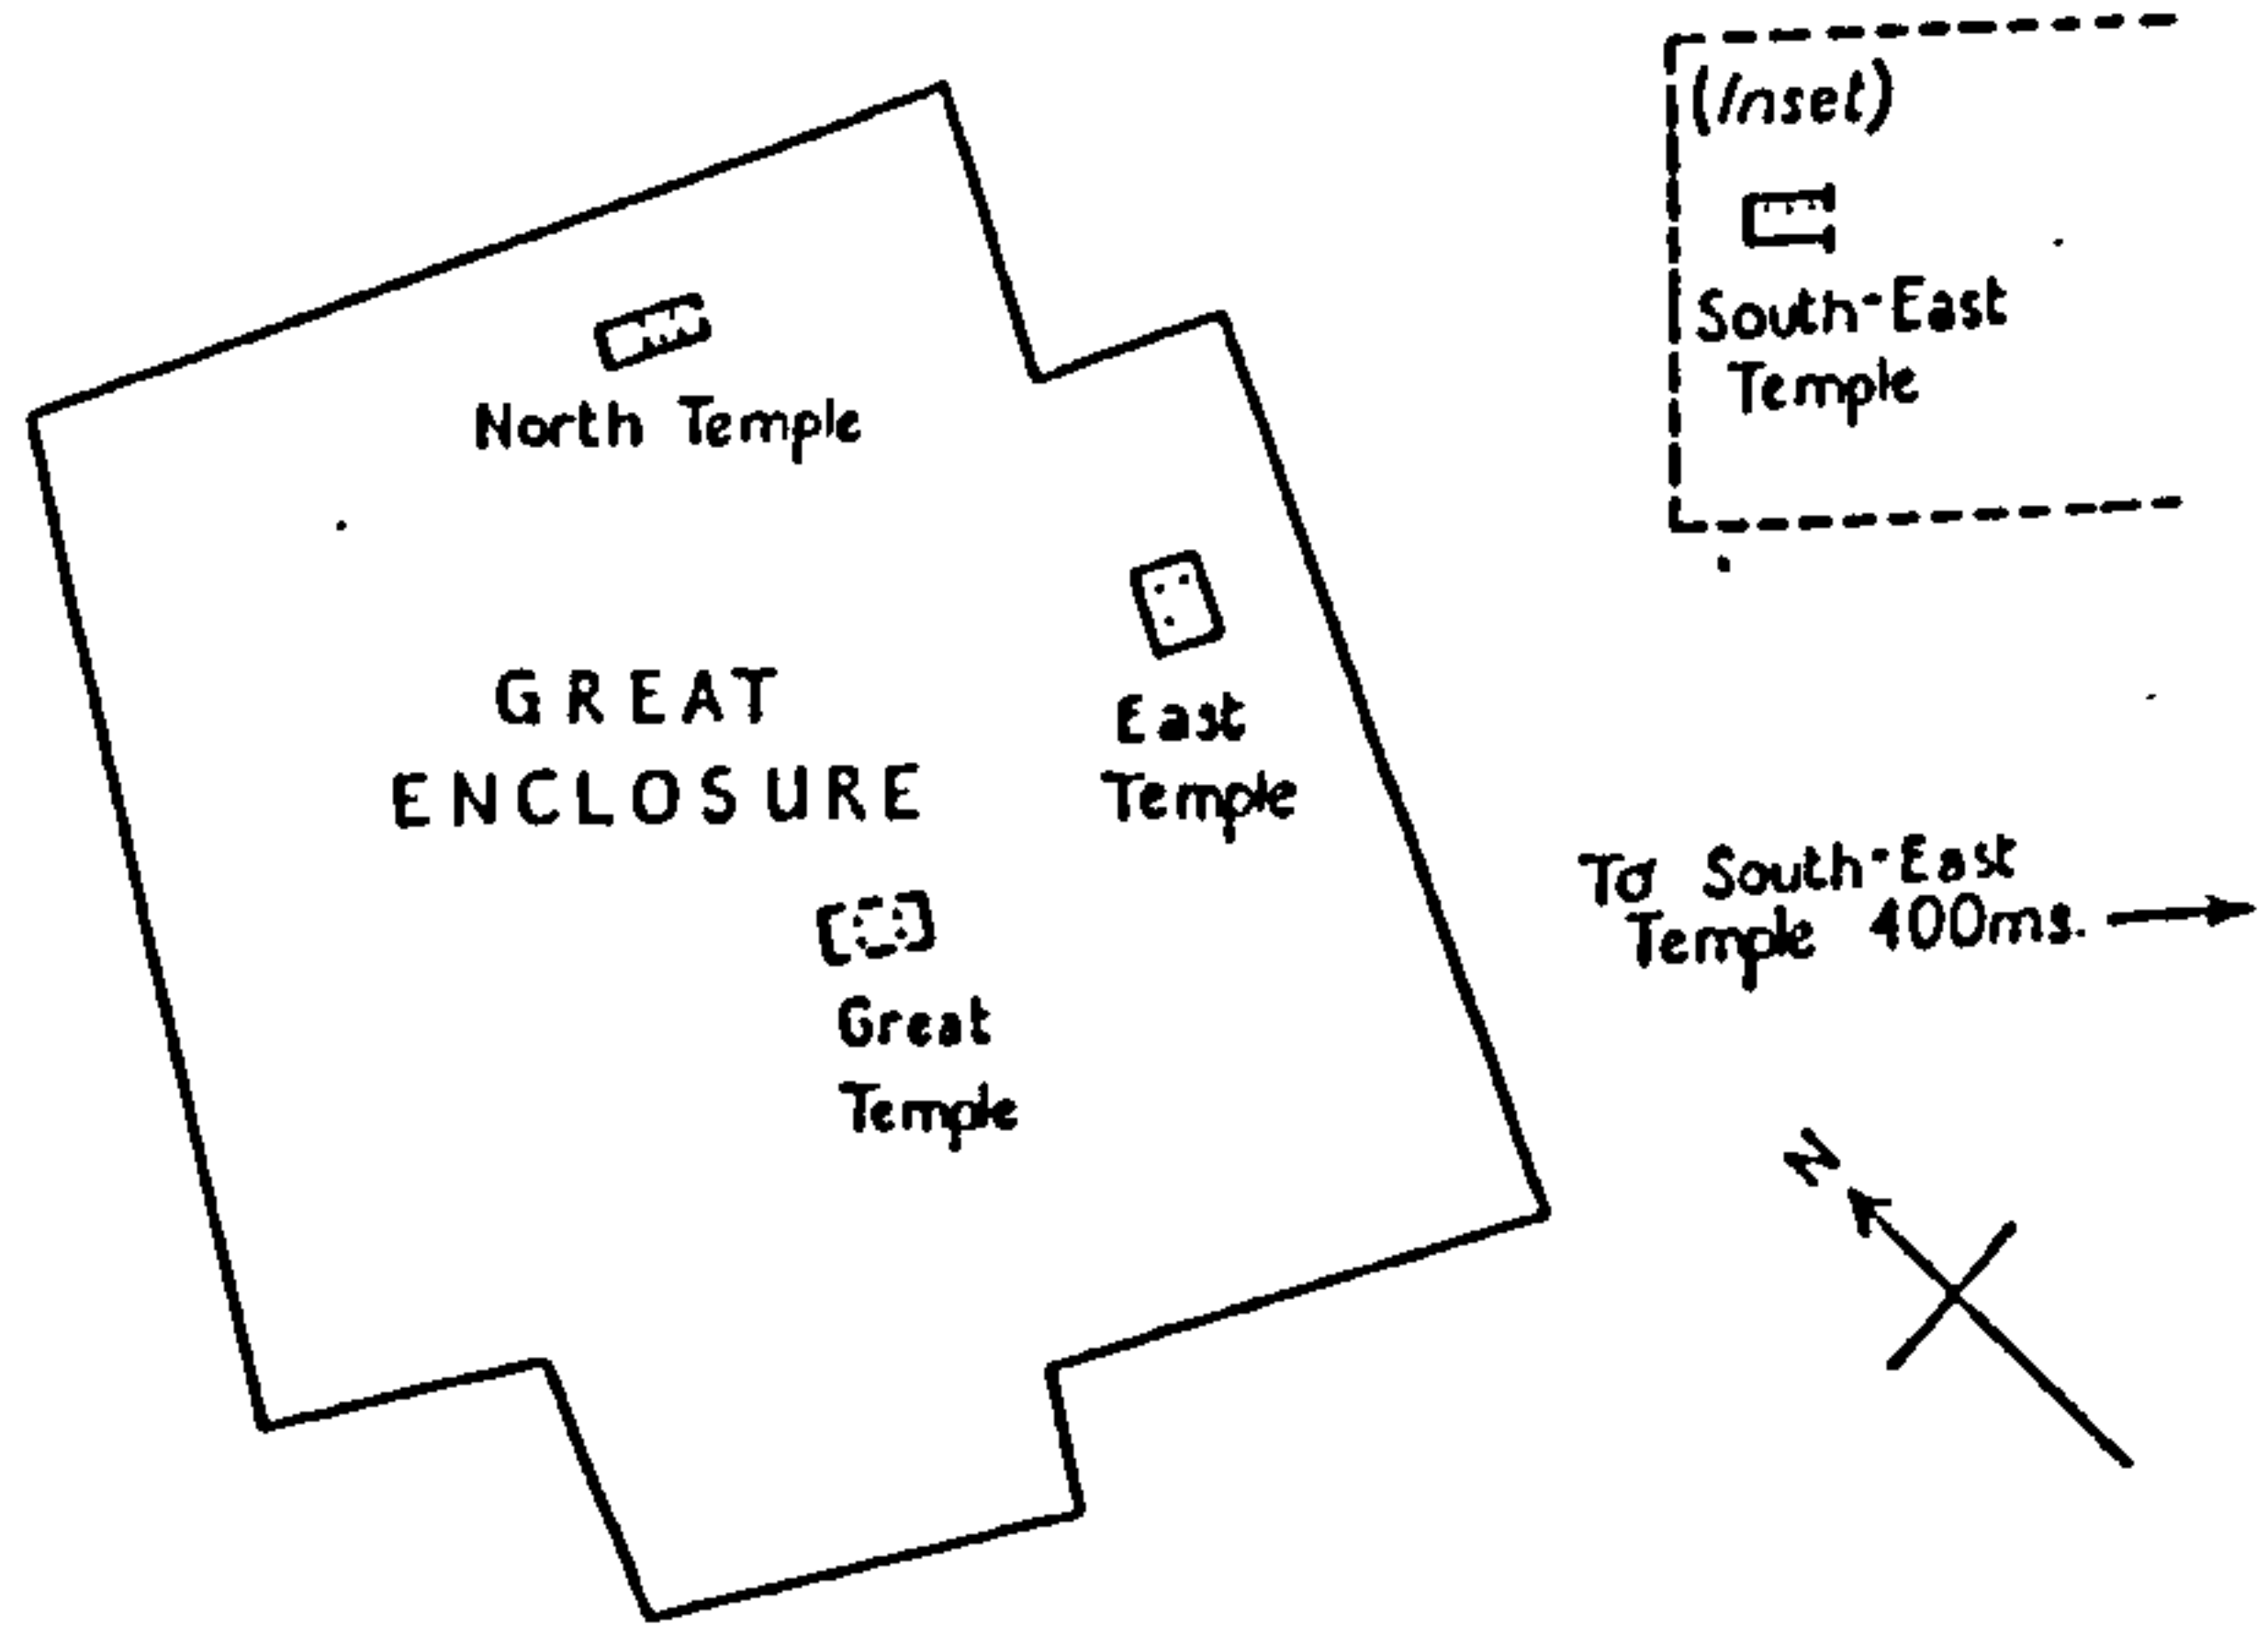 (Inset)
South-East
Temple
North Temple
GREAT
ENCLOSURE
East
Temple
Great
Temple
To South-East
Temple 400ms.
N